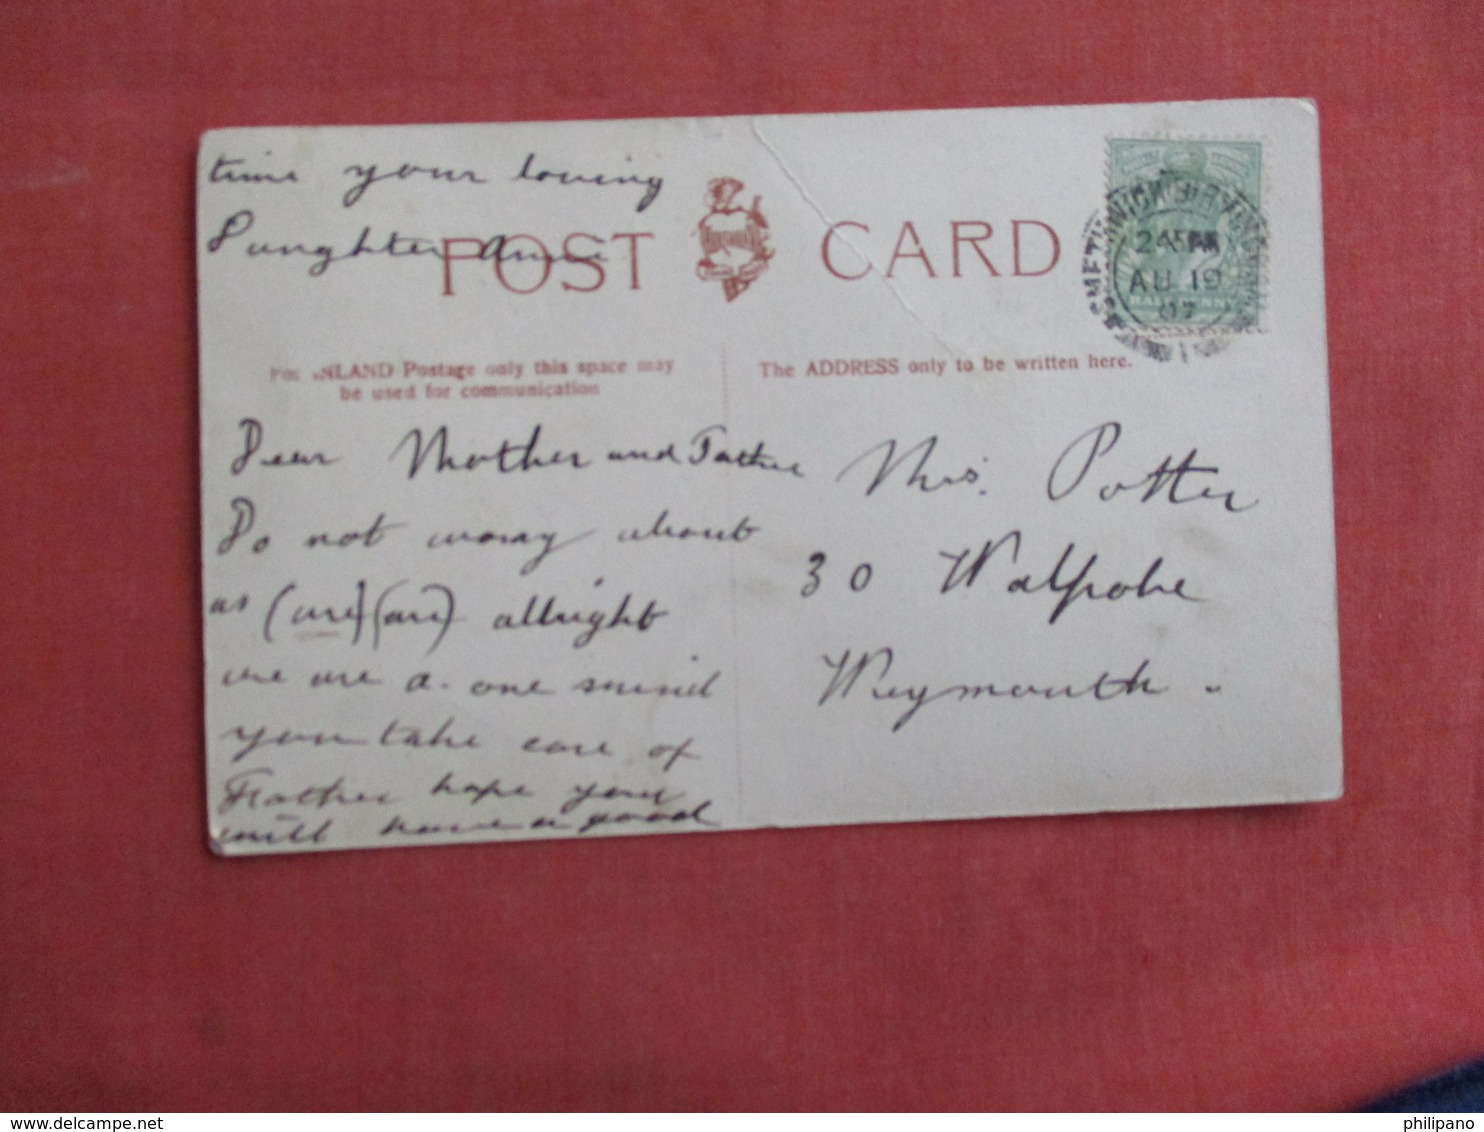 time your loving
Daughter Annie
POST CARD
INLAND Postage only this space may
be used for communication
The ADDRESS only to be written here.
SMETHWICK BIRMINGHAM
2 45 PM
AU 19
07
Dear Mother and Father
Do not worry about
as (are) (are) allright
we are a one mind
you take care of
Father hope you
will have a good
Mrs. Potter
30 Walpole
Weymouth
www.delcampe.net
philipano